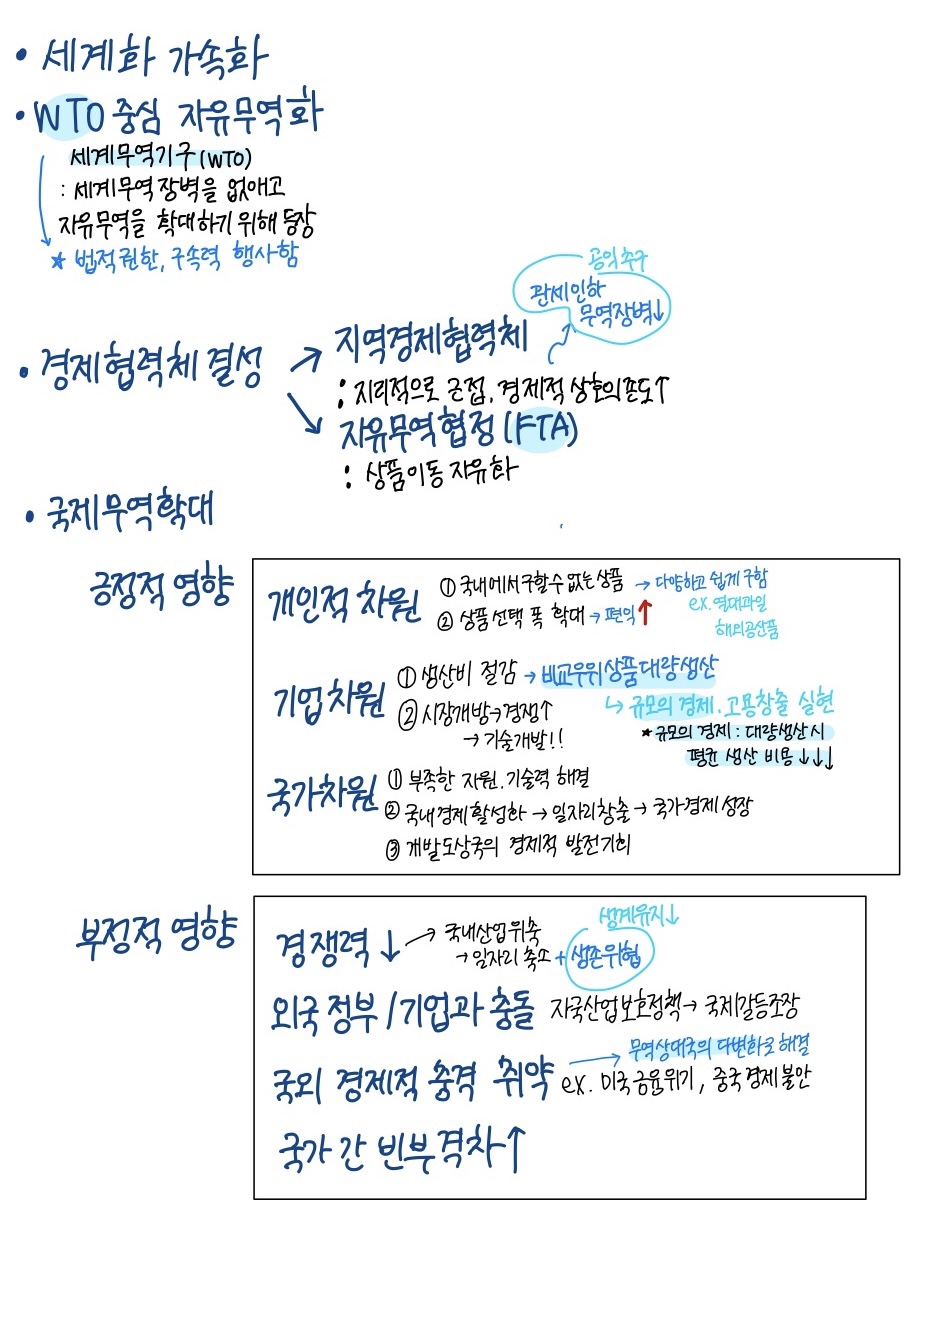 • 세계화 가속화
• WTO 중심 자유무역화
세계무역기구(WTO)
: 세계무역장벽을 없애고
자유무역을 확대하기 위해 등장
★ 법적권한, 구속력 행사함
공익추구
관세인하
무역장벽↓
• 경제협력체 결성 → 지역경제협력체
: 지리적으로 근접, 경제적 상호의존도↑
자유무역협정 (FTA)
: 상품이동 자유화
• 국제무역확대
긍정적 영향
개인적 차원
① 국내에서 구할 수 없는 상품 → 다양하고 쉽게 구함
ex. 열대과일
해외공산품
② 상품 선택 폭 확대 → 편익↑
기업 차원
① 생산비 절감 → 비교우위상품 대량생산
↳ 규모의 경제. 고용창출 실현
★ 규모의 경제 : 대량생산 시
평균 생산 비용↓↓↓
② 시장개방→경쟁↑
→ 기술개발!!
국가차원
① 부족한 자원, 기술력 해결
② 국내경제활성화 → 일자리창출 → 국가경제성장
③ 개발도상국의 경제적 발전기회
부정적 영향
경쟁력↓ → 국내산업위축
→ 일자리 축소 + 생존위협
생계유지↓
외국 정부/기업과 충돌 자국산업보호정책→ 국제갈등조장
국외 경제적 충격 취약 → 무역상대국의 다변화로 해결
ex. 미국금융위기, 중국경제불안
국가 간 빈부격차↑